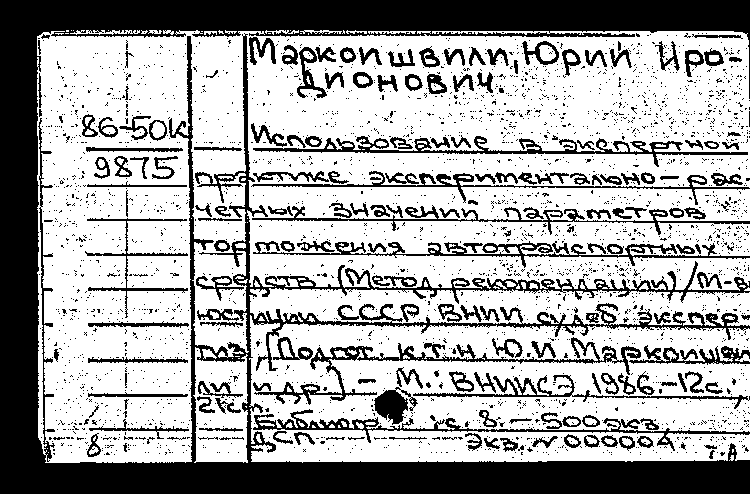 Маркоишвили, Юрий Иро-
дионович.
86-50к
9875
Использование в экспертной
практике экспериментально-рас-
четных значений параметров
торможения автотранспортных
средств: (Метод. рекомендации)/М-во
юстиции СССР, ВНИИ судеб. экспер-
тиз; [Подгот. к.т.н. Ю.И. Маркоишви
ли и др.] - М.: ВНИИСЭ, 1986.-12с.;
21см.
Библиогр.: с. 8. - 500 экз.
ДСП. Экз. N 000004.
8 Т.А